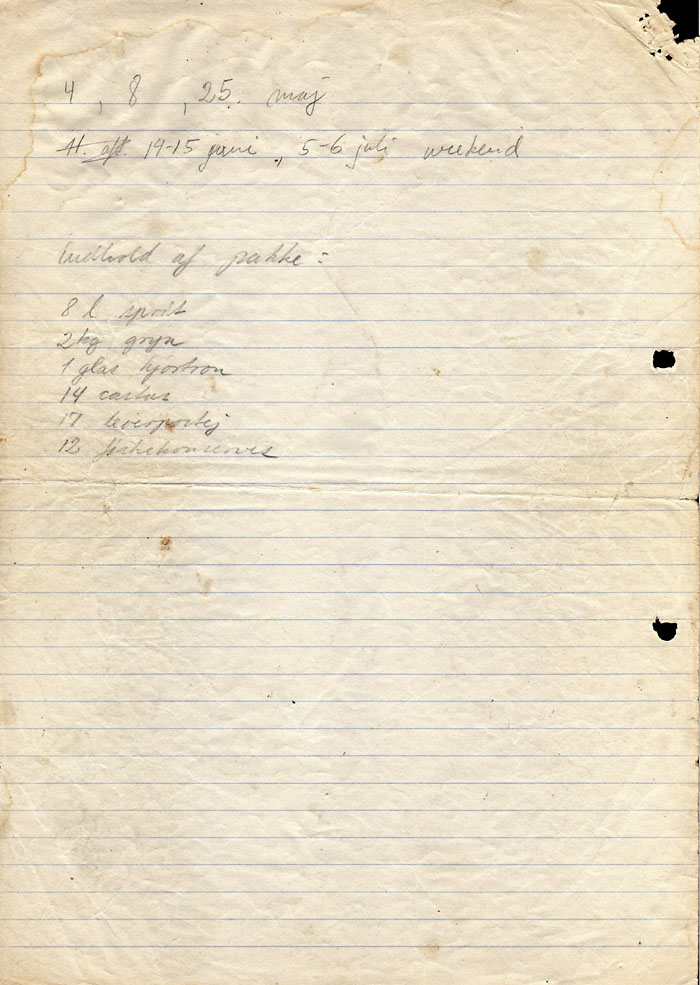 4, 8, 25. maj
14-15 juni, 5-6 juli weekend
Indhold af pakke:
8 l sprit
2 kg gryn
1 glas
14
17 leverpostej
12 fiskekonserves